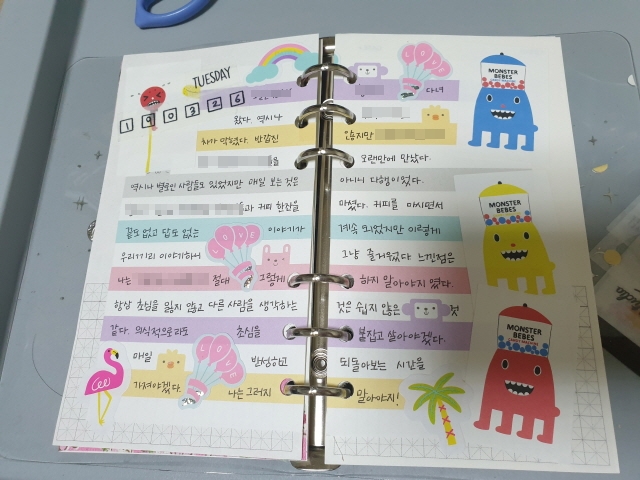 TUESDAY
190326
다녀
왔다. 역시나
차가 막혔다. 반갑진
을 오랜만에 만났다.
역시나 별로인 사람들도 있었지만 매일 보는 것은 아니니 다행이었다.
과 커피 한잔을 마셨다. 커피를 마시면서
끝도 없고 답도 없는 이야기가 계속 되었지만 이렇게
우리끼리 이야기해서 그냥 즐거웠다. 느낀점은
나는 절대 그렇게 하지 말아야지 했다.
항상 초심을 잃지 않고 다른 사람을 생각하는 것은 쉽지 않은 것
같다. 의식적으로라도 초심을 붙잡고 살아야겠다.
매일 반성하고 되돌아보는 시간을
가져야겠다. 나는 그러지 말아야지!
LOVE
LOVE
LOVE
MONSTER
BEBES
MONSTER
BEBES
MONSTER
BEBES